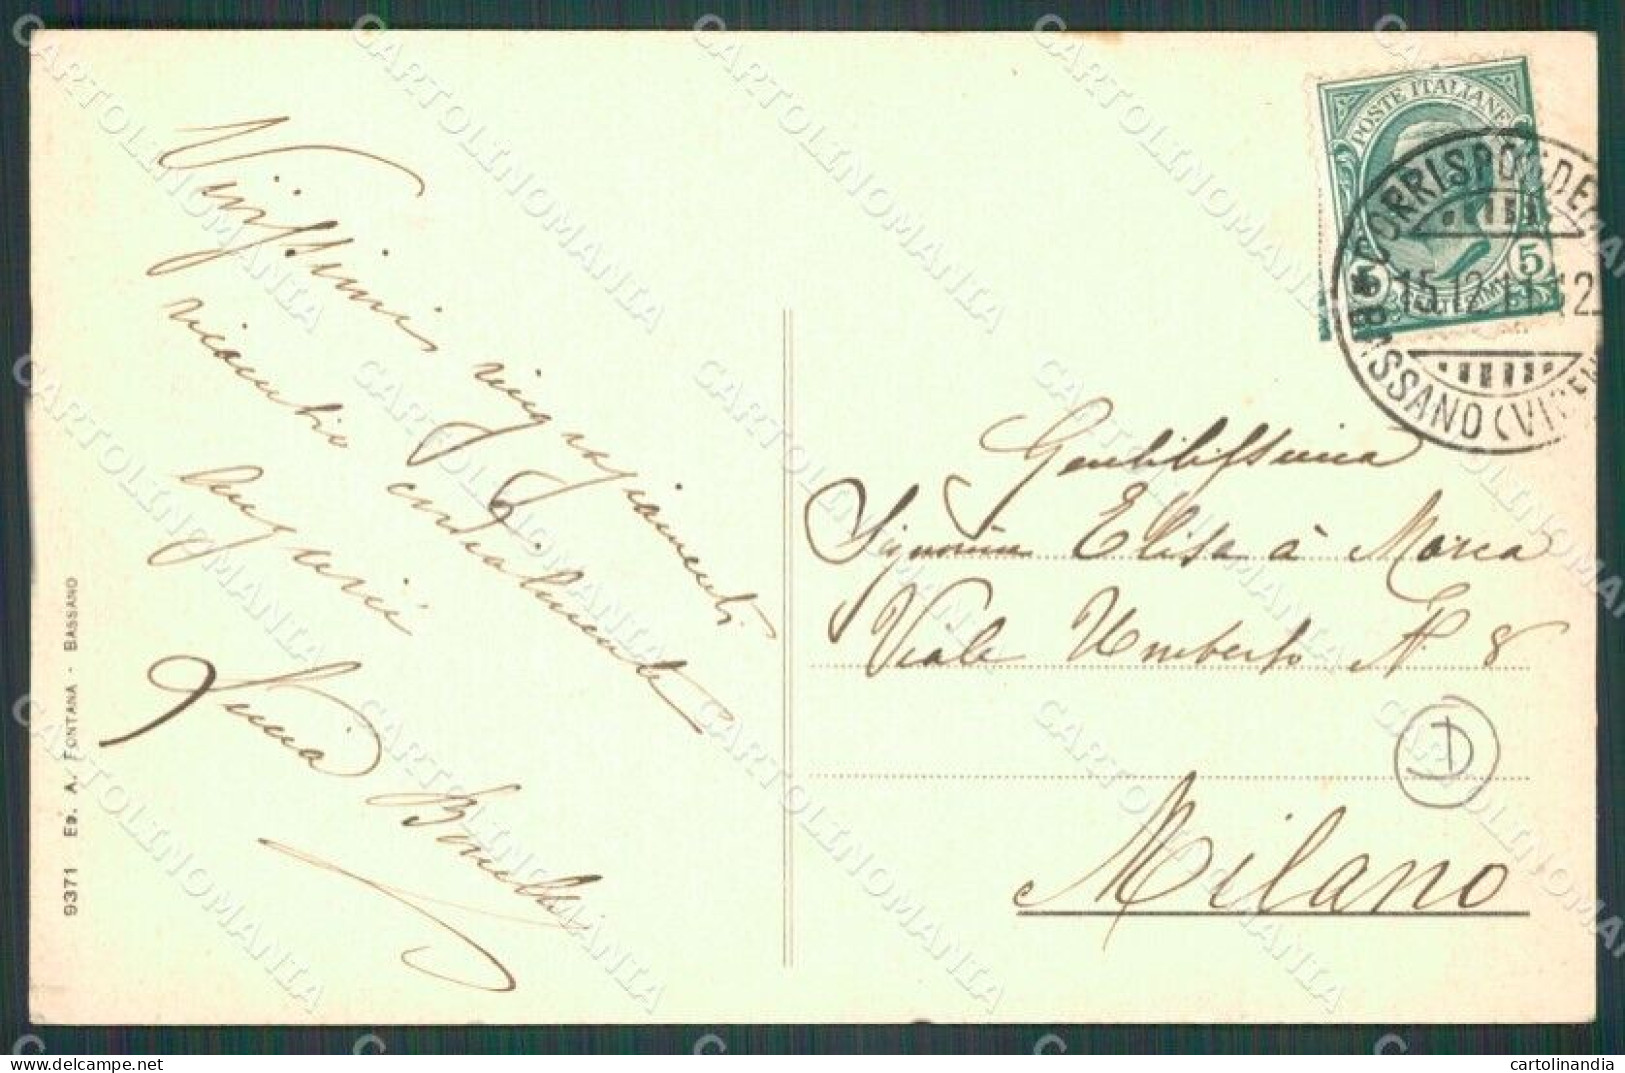 Vivissimi ringraziamenti
ricambio cordialmente
auguri
Lucia
POSTE ITALIANE
5
CORRISPONDEN
15.12.11.12
BASSANO (VICEN
Gentilissima
Signorina Elisa à Marca
Viale Umberto N. 8
D
Milano
9371 ED. A. FONTANA - BASSANO
CARTOLINOMANIA
cartolinandia